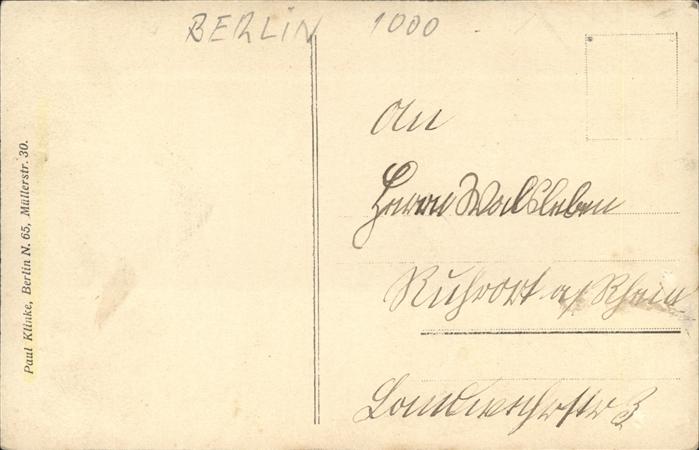 BERLIN 1000
An
Herrn Walsleben
Ruhrort a/ Rhein
Landwehrstr 3
Paul Klinke, Berlin N. 65, Müllerstr. 30.